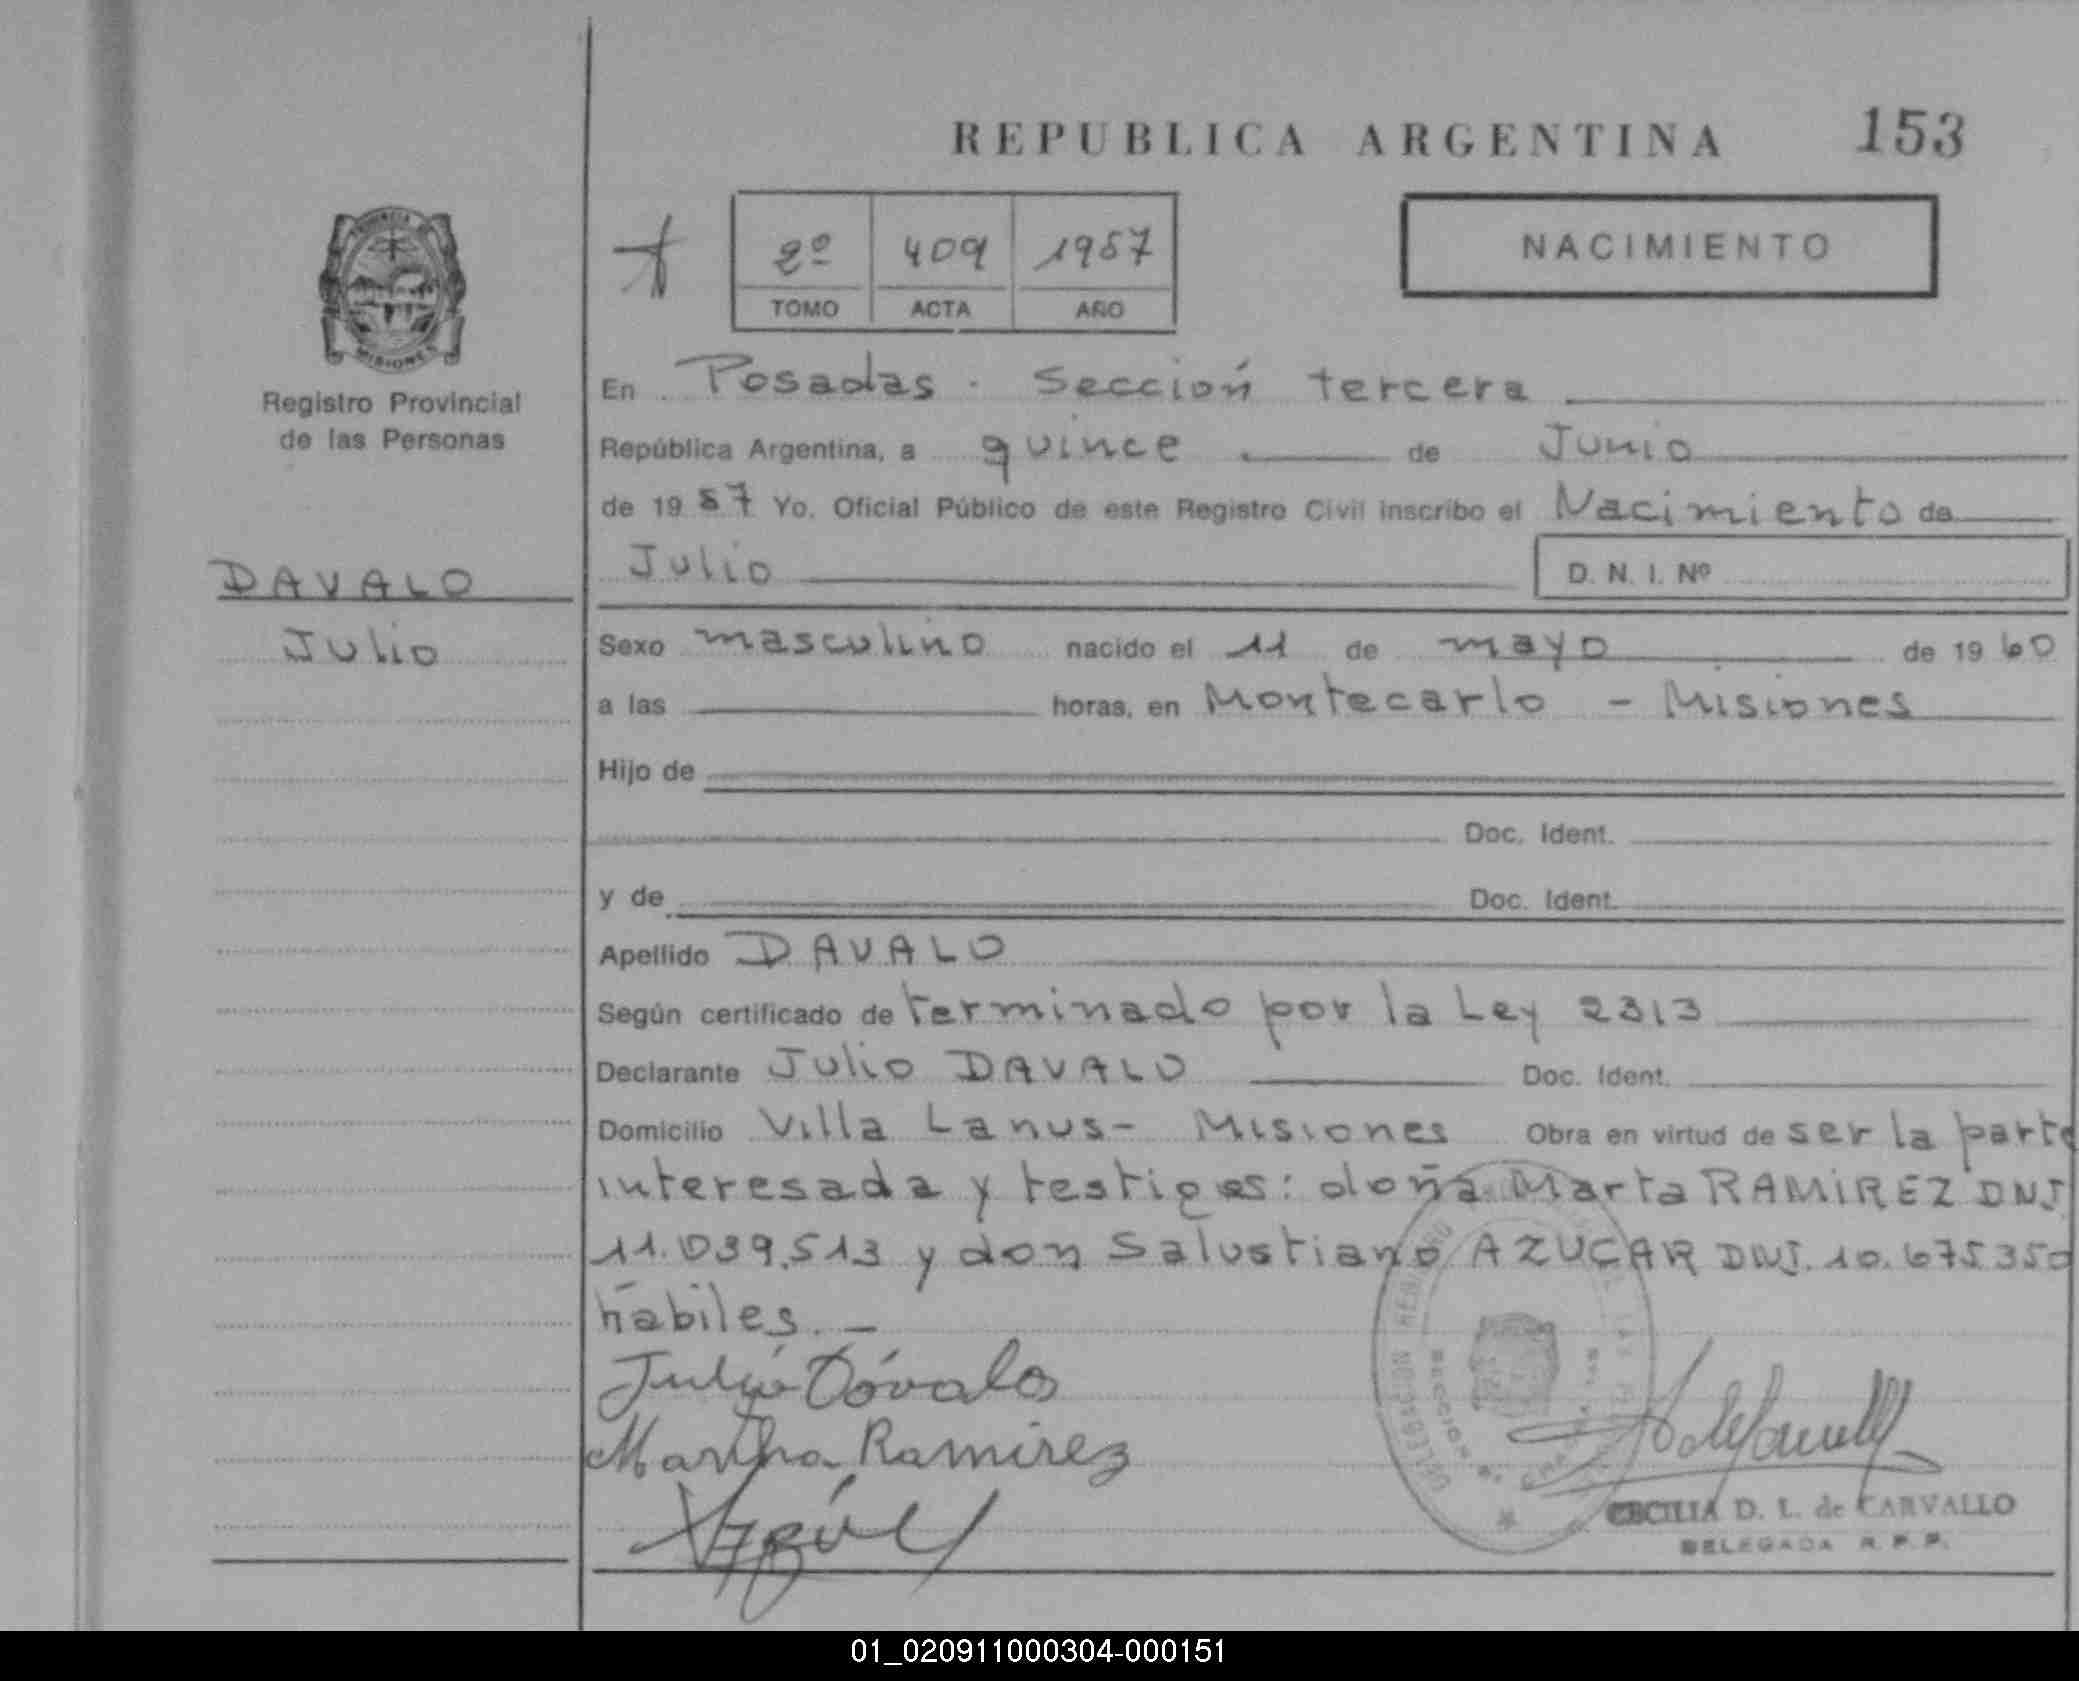 REPUBLICA ARGENTINA 153
NACIMIENTO
2º 409 1987
TOMO ACTA AÑO
MISIONES
Registro Provincial
de las Personas
En Posadas - Sección tercera
República Argentina, a quince de Junio
de 1987 Yo. Oficial Público de este Registro Civil inscribo el Nacimiento de
Julio D. N. I. Nº
DAVALO
Julio
Sexo masculino nacido el 11 de mayo de 1960
a las horas, en Montecarlo - Misiones
Hijo de
Doc. Ident.
y de Doc. Ident.
Apellido DAVALO
Según certificado determinado por la Ley 2313
Declarante Julio DAVALO Doc. Ident.
Domicilio Villa Lanus - Misiones Obra en virtud de ser la parte
interesada y testigos: doña Marta RAMIREZ DNI
11.039.513 y don Salustiano AZUCAR DNI. 10.675.350
hábiles. -
Julio Dávalo
Martha Ramirez
CECILIA D. L. de CARVALLO
DELEGADA R. P. P.
01_020911000304-000151